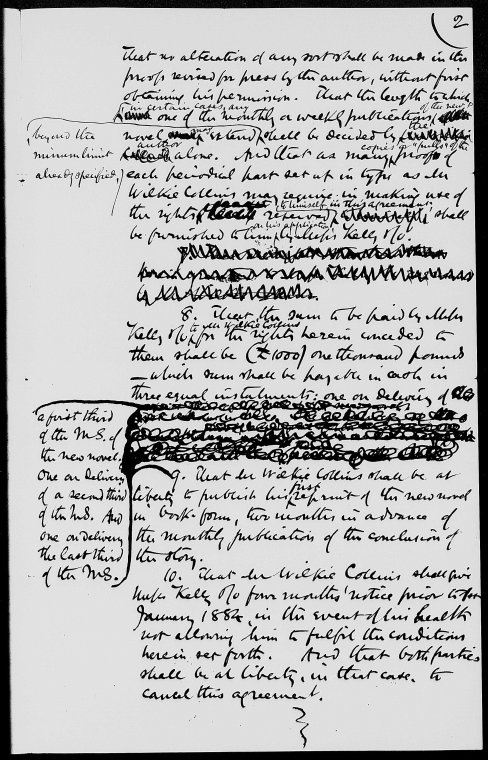 2
That no alteration of any sort shall be made in the
proofs revised for press by the author, without first
obtaining his permission. That the length to which
(in certain cases) any
of the new
one of the monthly or weekly publications
novel may extend, shall be decided by the
beyond the
minimum limit
already specified,
author
copies or "pulls" of the
alone. And that as many proofs of
each periodical part set up in type as Mr
Wilkie Collins may require in making use of
to himself in this agreement
the rights reserved shall
on his application
be furnished to him by Messrs Kelly & Co.
8. That the sum to be paid by Messrs
to Mr Wilkie Collins
Kelly & Co for the rights herein conceded to
them shall be (£1000) one thousand pounds
— which sum shall be payable in cash in
three equal instalments: one on delivery of
a first third
of the M.S. of
the new novel.
One on delivery
of a second third
of the M.S. And
one on delivery
the last third
of the M.S.
9. That Mr Wilkie Collins shall be at
first
liberty to publish his reprint of the new novel
in book-form, two months in advance of
the monthly publication of the conclusion of
the story.
10. That Mr Wilkie Collins shall give
Messrs Kelly & Co four months' notice prior to
January 1884, in the event of his health
not allowing him to fulfil the conditions
herein set forth. And that both parties
shall be at liberty, in that case, to
cancel this agreement.